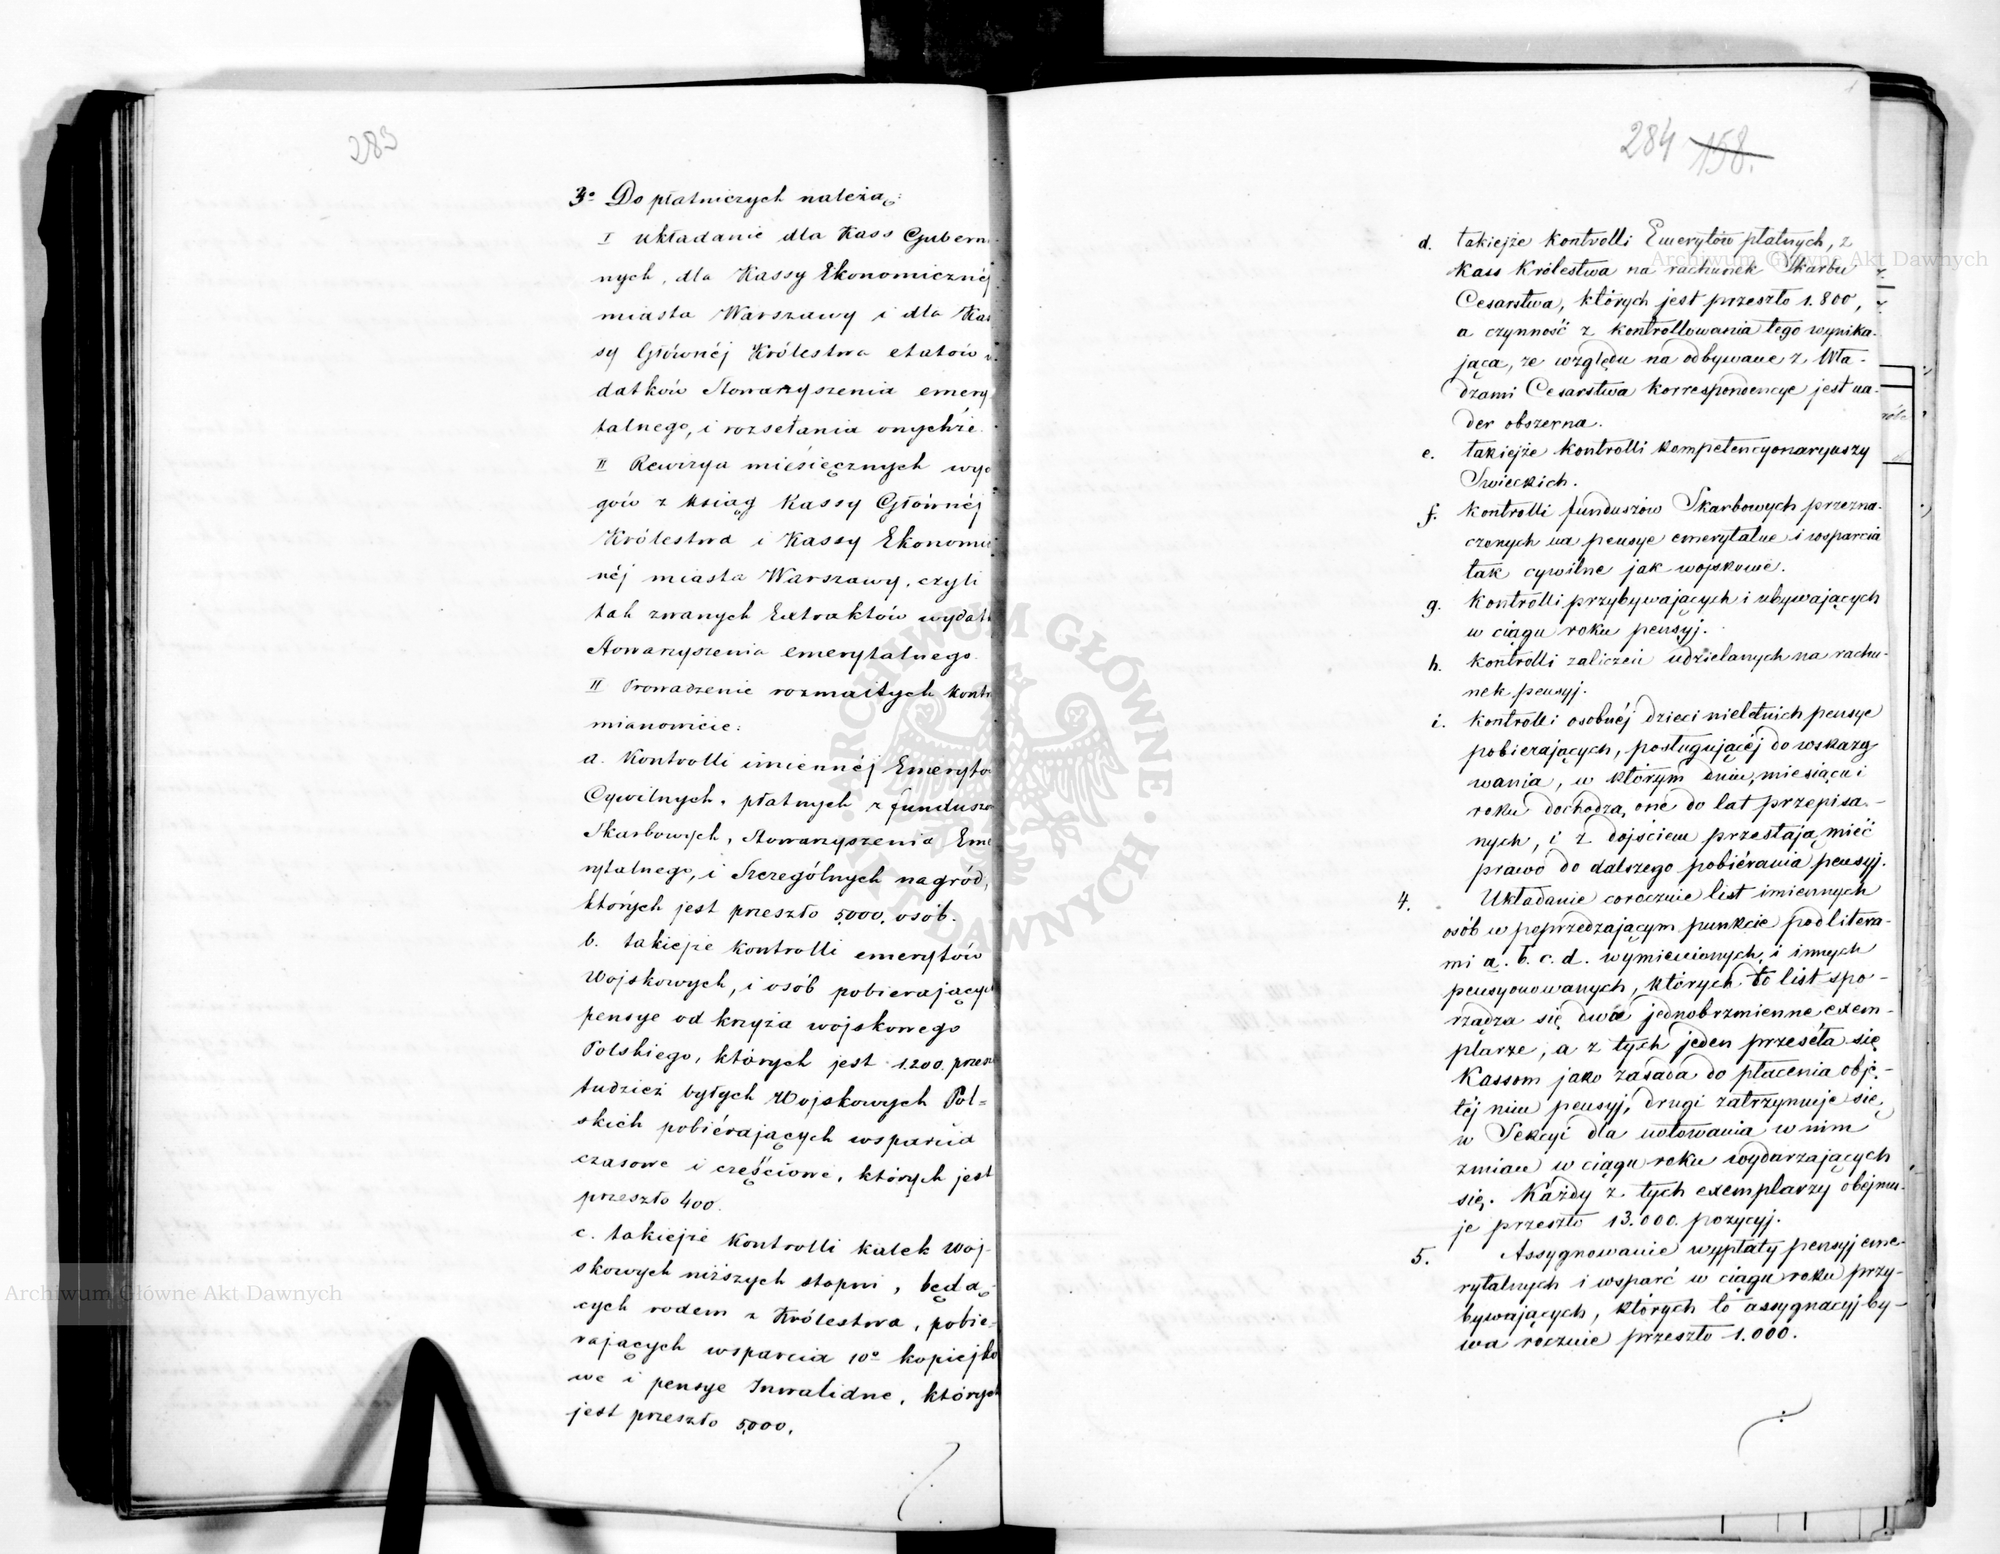 283
3º Do płatniczych należą:
I układanie dla Kass Guberni-
nych, dla Kassy Ekonomicznéj
miasta Warszawy i dla Kas
sy Głównéj Królestwa etatów
datków Stowarzyszenia emery
talnego, i rozsełania onychże.
II Rewizya miesięcznych wyc
gów z ksiąg Kassy Głównéj
Królestwa i Kassy Ekonomi
néj miasta Warszawy, czyli
tak zwanych Extraktów wydat
Stowarzyszenia emerytalnego.
II Prowadzenie rozmaitych Kontr
mianowicie:
a. Kontrolli imiennéj Emeryto
Cywilnych, płatnych z fundusz
Skarbowych, Stowarzyszenia Eme
rytalnego, i Szczególnych nagród,
których jest przeszło 5,000, osób.
b. takiejże Kontrolli emerytów
Wojskowych, i osób pobierających
pensye od krzyża wojskowego
Polskiego, których jest 1200. przesz
tudzież byłych Wojskowych Pol=
skich pobiérających wsparcia
czasowe i częściowe, których jest
przeszło 400.
c. takiejże Kontrolli kalek Woj-
skowych niższych stopni, będą-
cych rodem z Królestwa, pobie-
rających wsparcia 10º kopiejko
we i pensye Inwalidne, których
jest przeszło 5,000.
284 158.
d. takiejże Kontrolli Emerytów płatnych, z
Kass Królestwa na rachunek Skarbu
Cesarstwa, których jest przeszło 1.800,
a czynność z kontrollowania tego wynika-
jąca, ze względu na odbywane z Wła-
dzami Cesarstwa Korrespondencye jest na-
der obszerna.
e. takiejże Kontrolli kompetencyonaryuszy
Swieckich.
f. Kontrolli funduszów Skarbowych przezna-
czonych na pensye emerytalne i wsparcia
tak cywilne jak wojskowe.
g. Kontrolli przybywających i ubywających
w ciągu roku pensyj.
h. Kontrolli zaliczeń udzielanych na rachu-
nek pensyj.
i. Kontrolli osobnéj dzieci nieletnich pensye
pobierających, posługującéj do wskazy
wania, w którym dniu, miesiącu i
roku dochodzą one do lat przepisa-
nych, i z dojściem przestają mieć
prawo do dalszego pobiérania pensyj.
4. Układanie corocznie list imiennych
osób w poprzedzającym punkcie pod litera-
mi a. b. c. d. wymienionych, i innych
pensyonowanych, których to list spo-
rządza się dwa jednobrzmienne exem-
plarze, a z tych jeden przeséła się
Kassom jako zasada do płacenia obję-
téj nim pensyj, drugi zatrzymuje się
w Sekcyi dla notowania w nim
zmian w ciągu roku wydarzających
się. Każdy z tych exemplarzy obejmu-
je przeszło 13.000. pozycyj.
5. Assygnowanie wypłaty pensyj eme-
rytalnych i wsparć w ciągu roku przy-
bywających, których to assygnacyj by-
wa rocznie przeszło 1.000.
Archiwum Główne Akt Dawnych
Archiwum Główne Akt Dawnych
ARCHIWUM GŁÓWNE AKT DAWNYCH